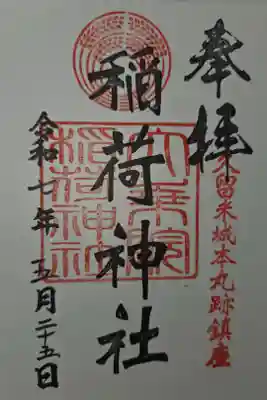 奉拝
久留米城本丸跡鎮座
稲荷神社
令和七年 五月二十五日